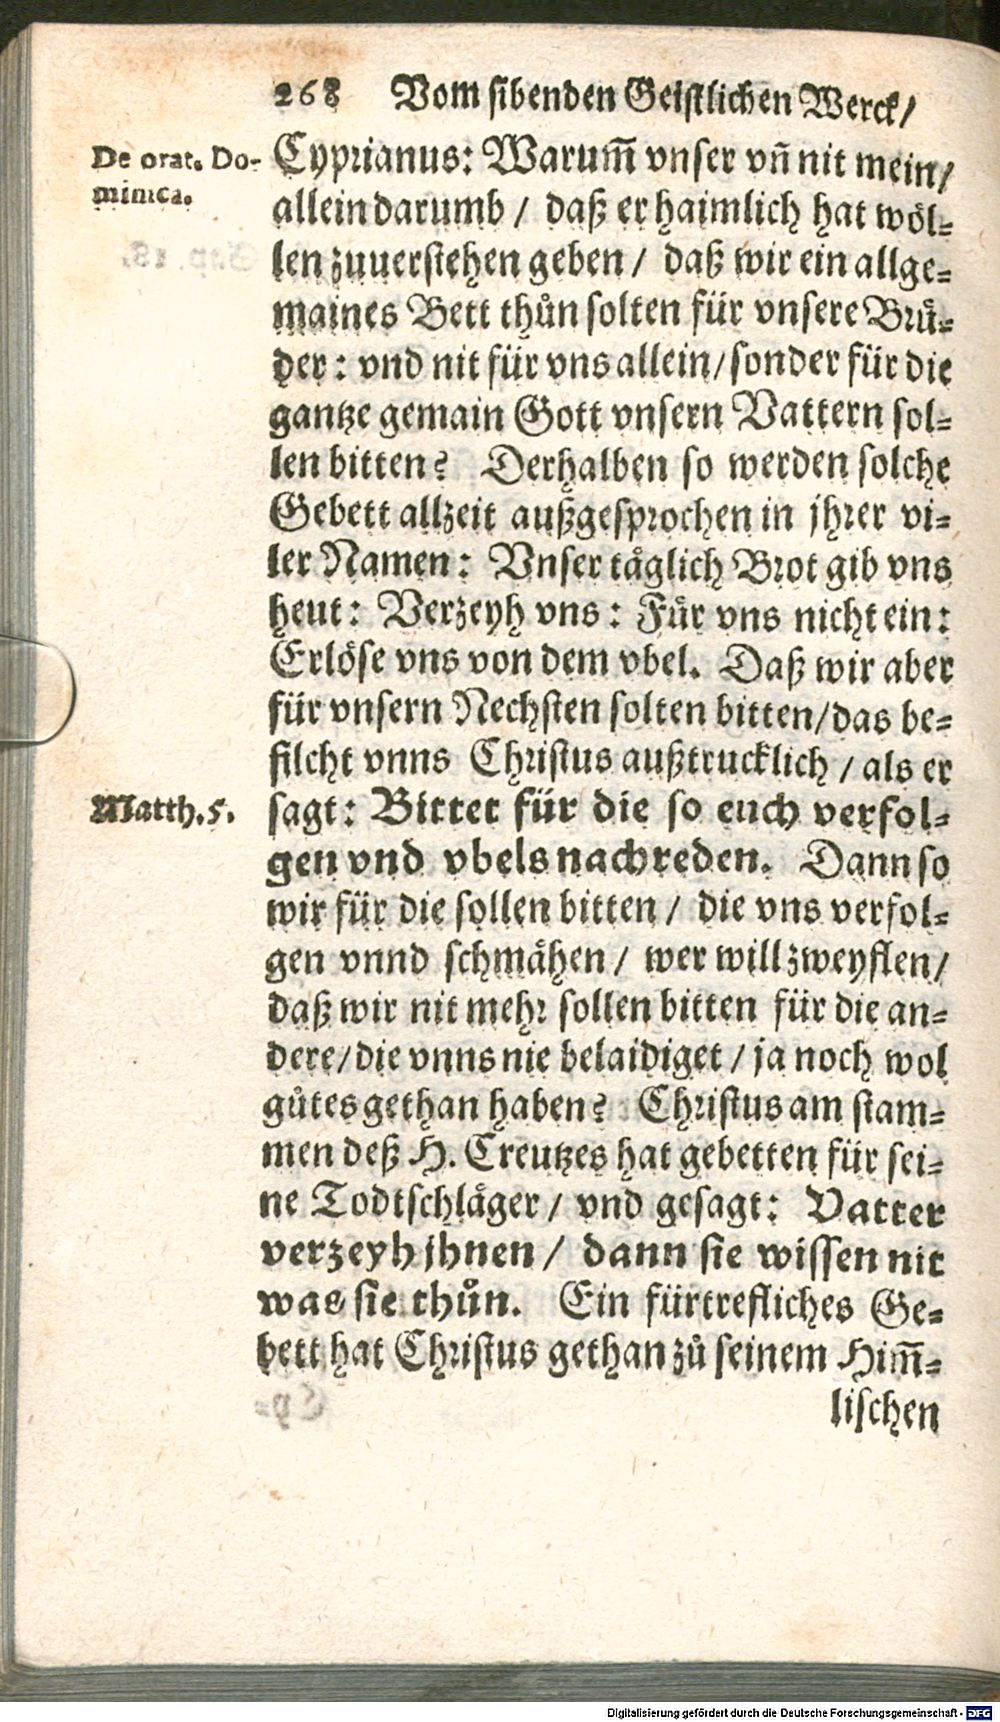 268 Vom sibenden Geistlichen Werck/
De orat. Do-
minica.
Cyprianus: Warum̃ vnser vñ nit mein/
allein darumb / daß er haimlich hat wöl-
len zuuerstehen geben / daß wir ein allge-
maines Bett thůn solten für vnsere Brů-
der: vnd nit für vns allein/sonder für die
gantze gemain Gott vnsern Vattern sol-
len bitten? Derhalben so werden solche
Gebett allzeit außgesprochen in jhrer vi-
ler Namen: Vnser täglich Brot gib vns
heut: Verzeyh vns: Für vns nicht ein:
Erlöse vns von dem vbel. Daß wir aber
für vnsern Nechsten solten bitten/das be-
filcht vnns Christus außtrucklich / als er
Matth.5.
sagt: Bittet für die so euch verfol-
gen vnd vbels nachreden. Dann so
wir für die sollen bitten / die vns verfol-
gen vnnd schmähen / wer will zweyflen/
daß wir nit mehr sollen bitten für die an-
dere/die vnns nie belaidiget / ja noch wol
gůtes gethan haben? Christus am stam-
men deß H. Creutzes hat gebetten für sei-
ne Todtschläger / vnd gesagt: Vatter
verzeyh jhnen / dann sie wissen nit
was sie thůn. Ein fürtrefliches Ge-
bett hat Christus gethan zů seinem Him̃-
lischen
Digitalisierung gefördert durch die Deutsche Forschungsgemeinschaft - DFG